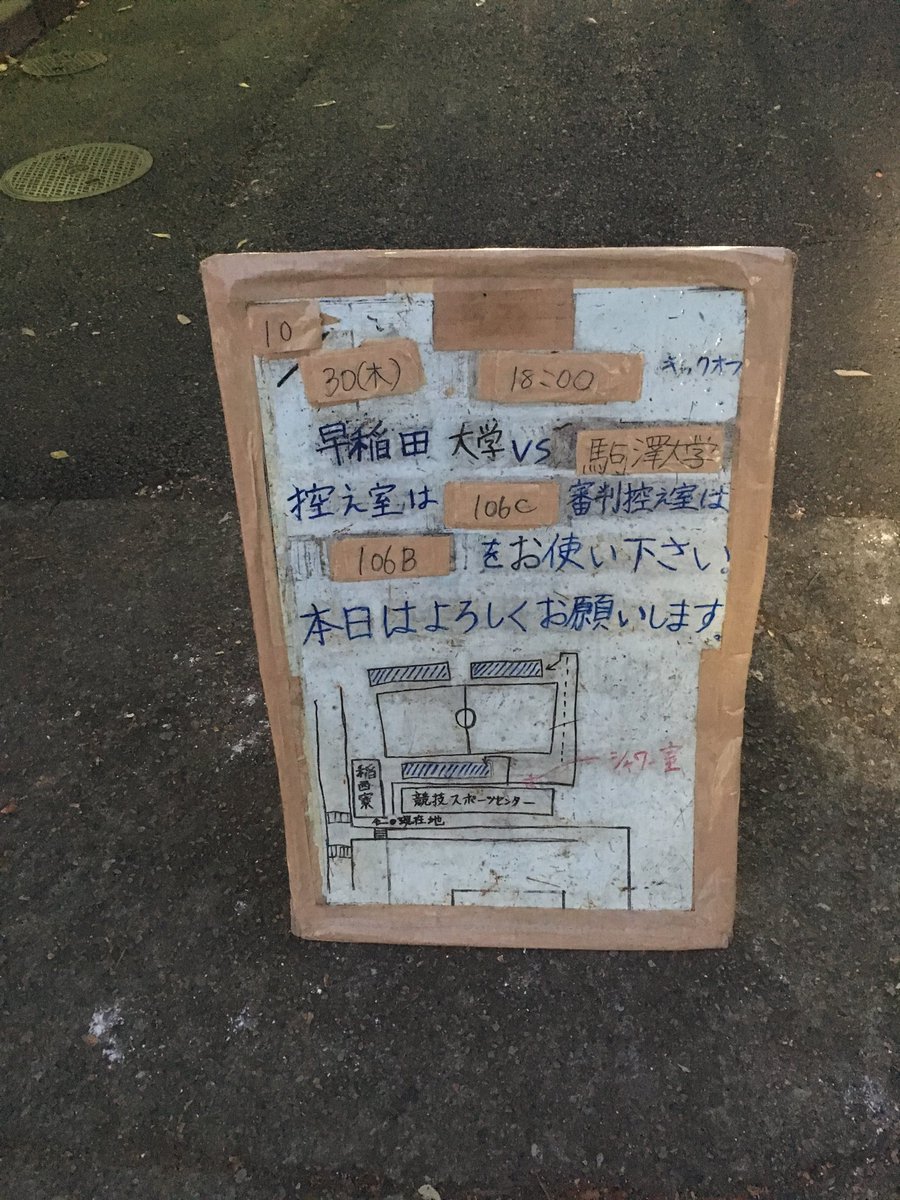 10/
30(木) 18:00 キックオフ
早稲田大学 VS 駒澤大学
控え室は 106C 審判控え室は
106B をお使い下さい。
本日はよろしくお願いします。
シャワー室
稲西寮
競技スポーツセンター
現在地